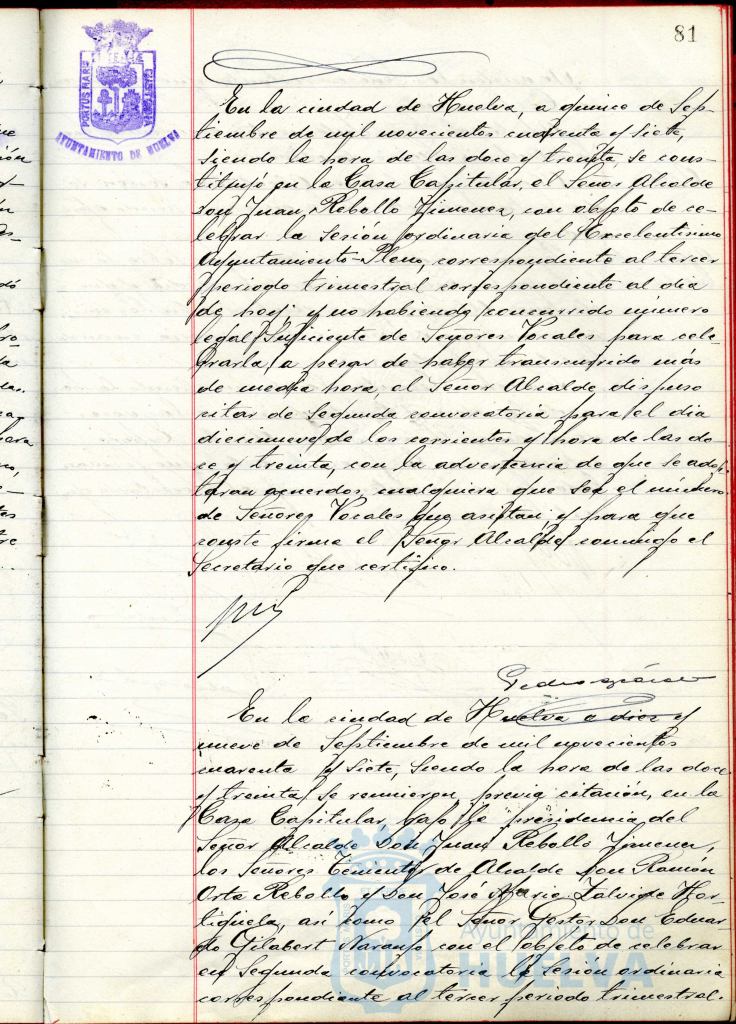 81
PORTUS MARIS ET TERRAE CUSTODIA
AYUNTAMIENTO DE HUELVA
En la ciudad de Huelva, a quince de Sep-
tiembre de mil novecientos cuarenta y siete,
siendo la hora de las doce y treinta, se cons-
tituyó en la Casa Capitular, el Señor Alcalde
Don Juan Rebollo Jimenez, con objeto de ce-
lebrar la sesión ordinaria del Excelentisimo
Ayuntamiento-Pleno, correspondiente al tercer
periodo trimestral correspondiente al dia
de hoy; y no habiendo concurrido número
legal suficiente de Señores Vocales para cele-
brarla, a pesar de haber transcurrido más
de media hora, el Señor Alcalde, dispuso
citar de segunda convocatoria para el dia
diecinueve de los corrientes y hora de las do-
ce y treinta, con la advertencia de que se adop-
taran acuerdos, cualquiera que sea el número
de Señores Vocales que asistan; y para que
conste firma el Señor Alcalde, conmigo el
Secretario que certifico.
En la ciudad de Huelva a diez y
nueve de Septiembre de mil novecientos
cuarenta y siete, siendo la hora de las doce
y treinta, se reunieron, previa citación, en la
Casa Capitular, bajo la presidencia del
Señor Alcalde Don Juan Rebollo Jimenez,
los Señores Tenientes de Alcalde Don Ramón
Orta Rebollo y Don José Maria Zalvide Hor-
tiguela, así como el Señor Gestor Don Eduar-
do Gilabert Naranjo con el objeto de celebrar
en segunda convocatoria la sesión ordinaria
correspondiente al tercer periodo trimestral.
Ayuntamiento de
HUELVA